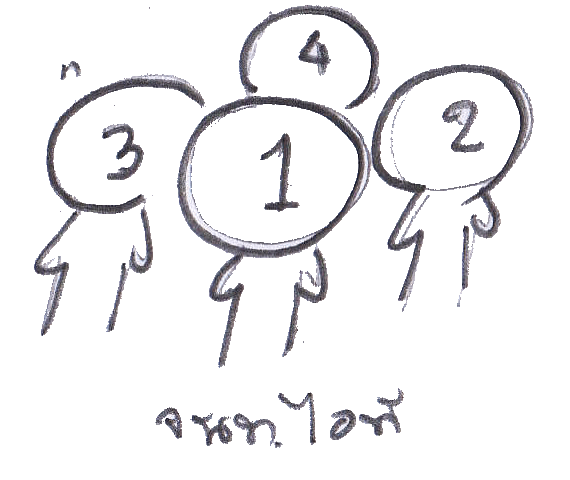 ก
4
3
1
2
จนท.ไอที